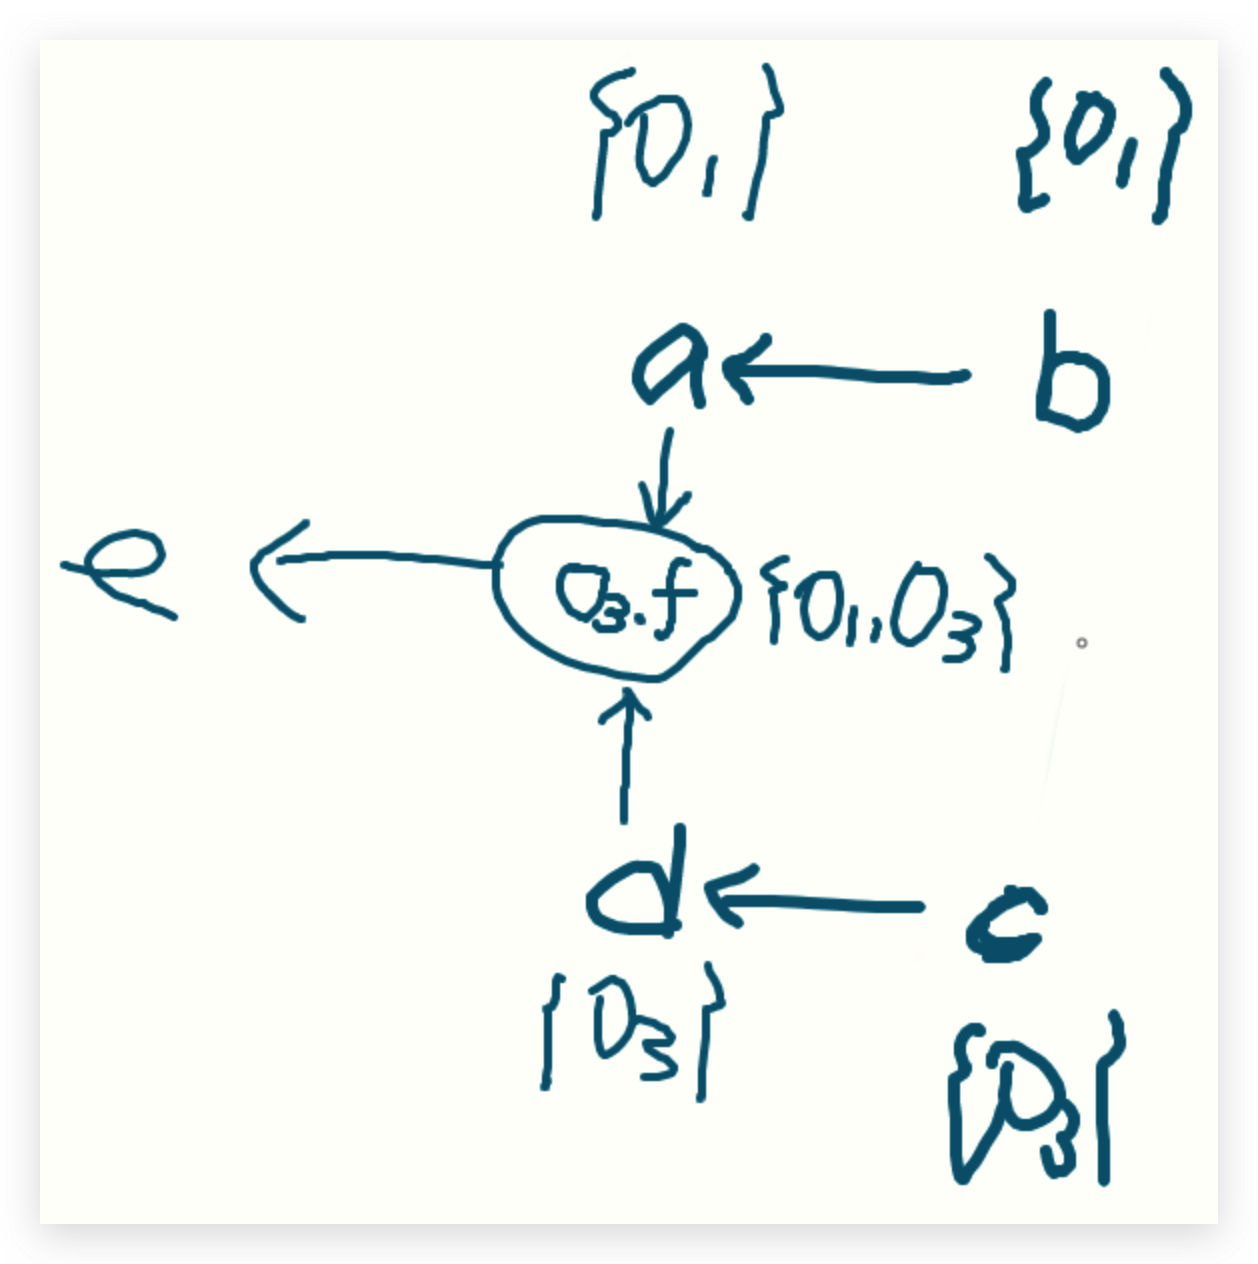 {O₁} {O₁}
a b
e O₃.f {O₁,O₃}
d c
{O₃}
{O₃}